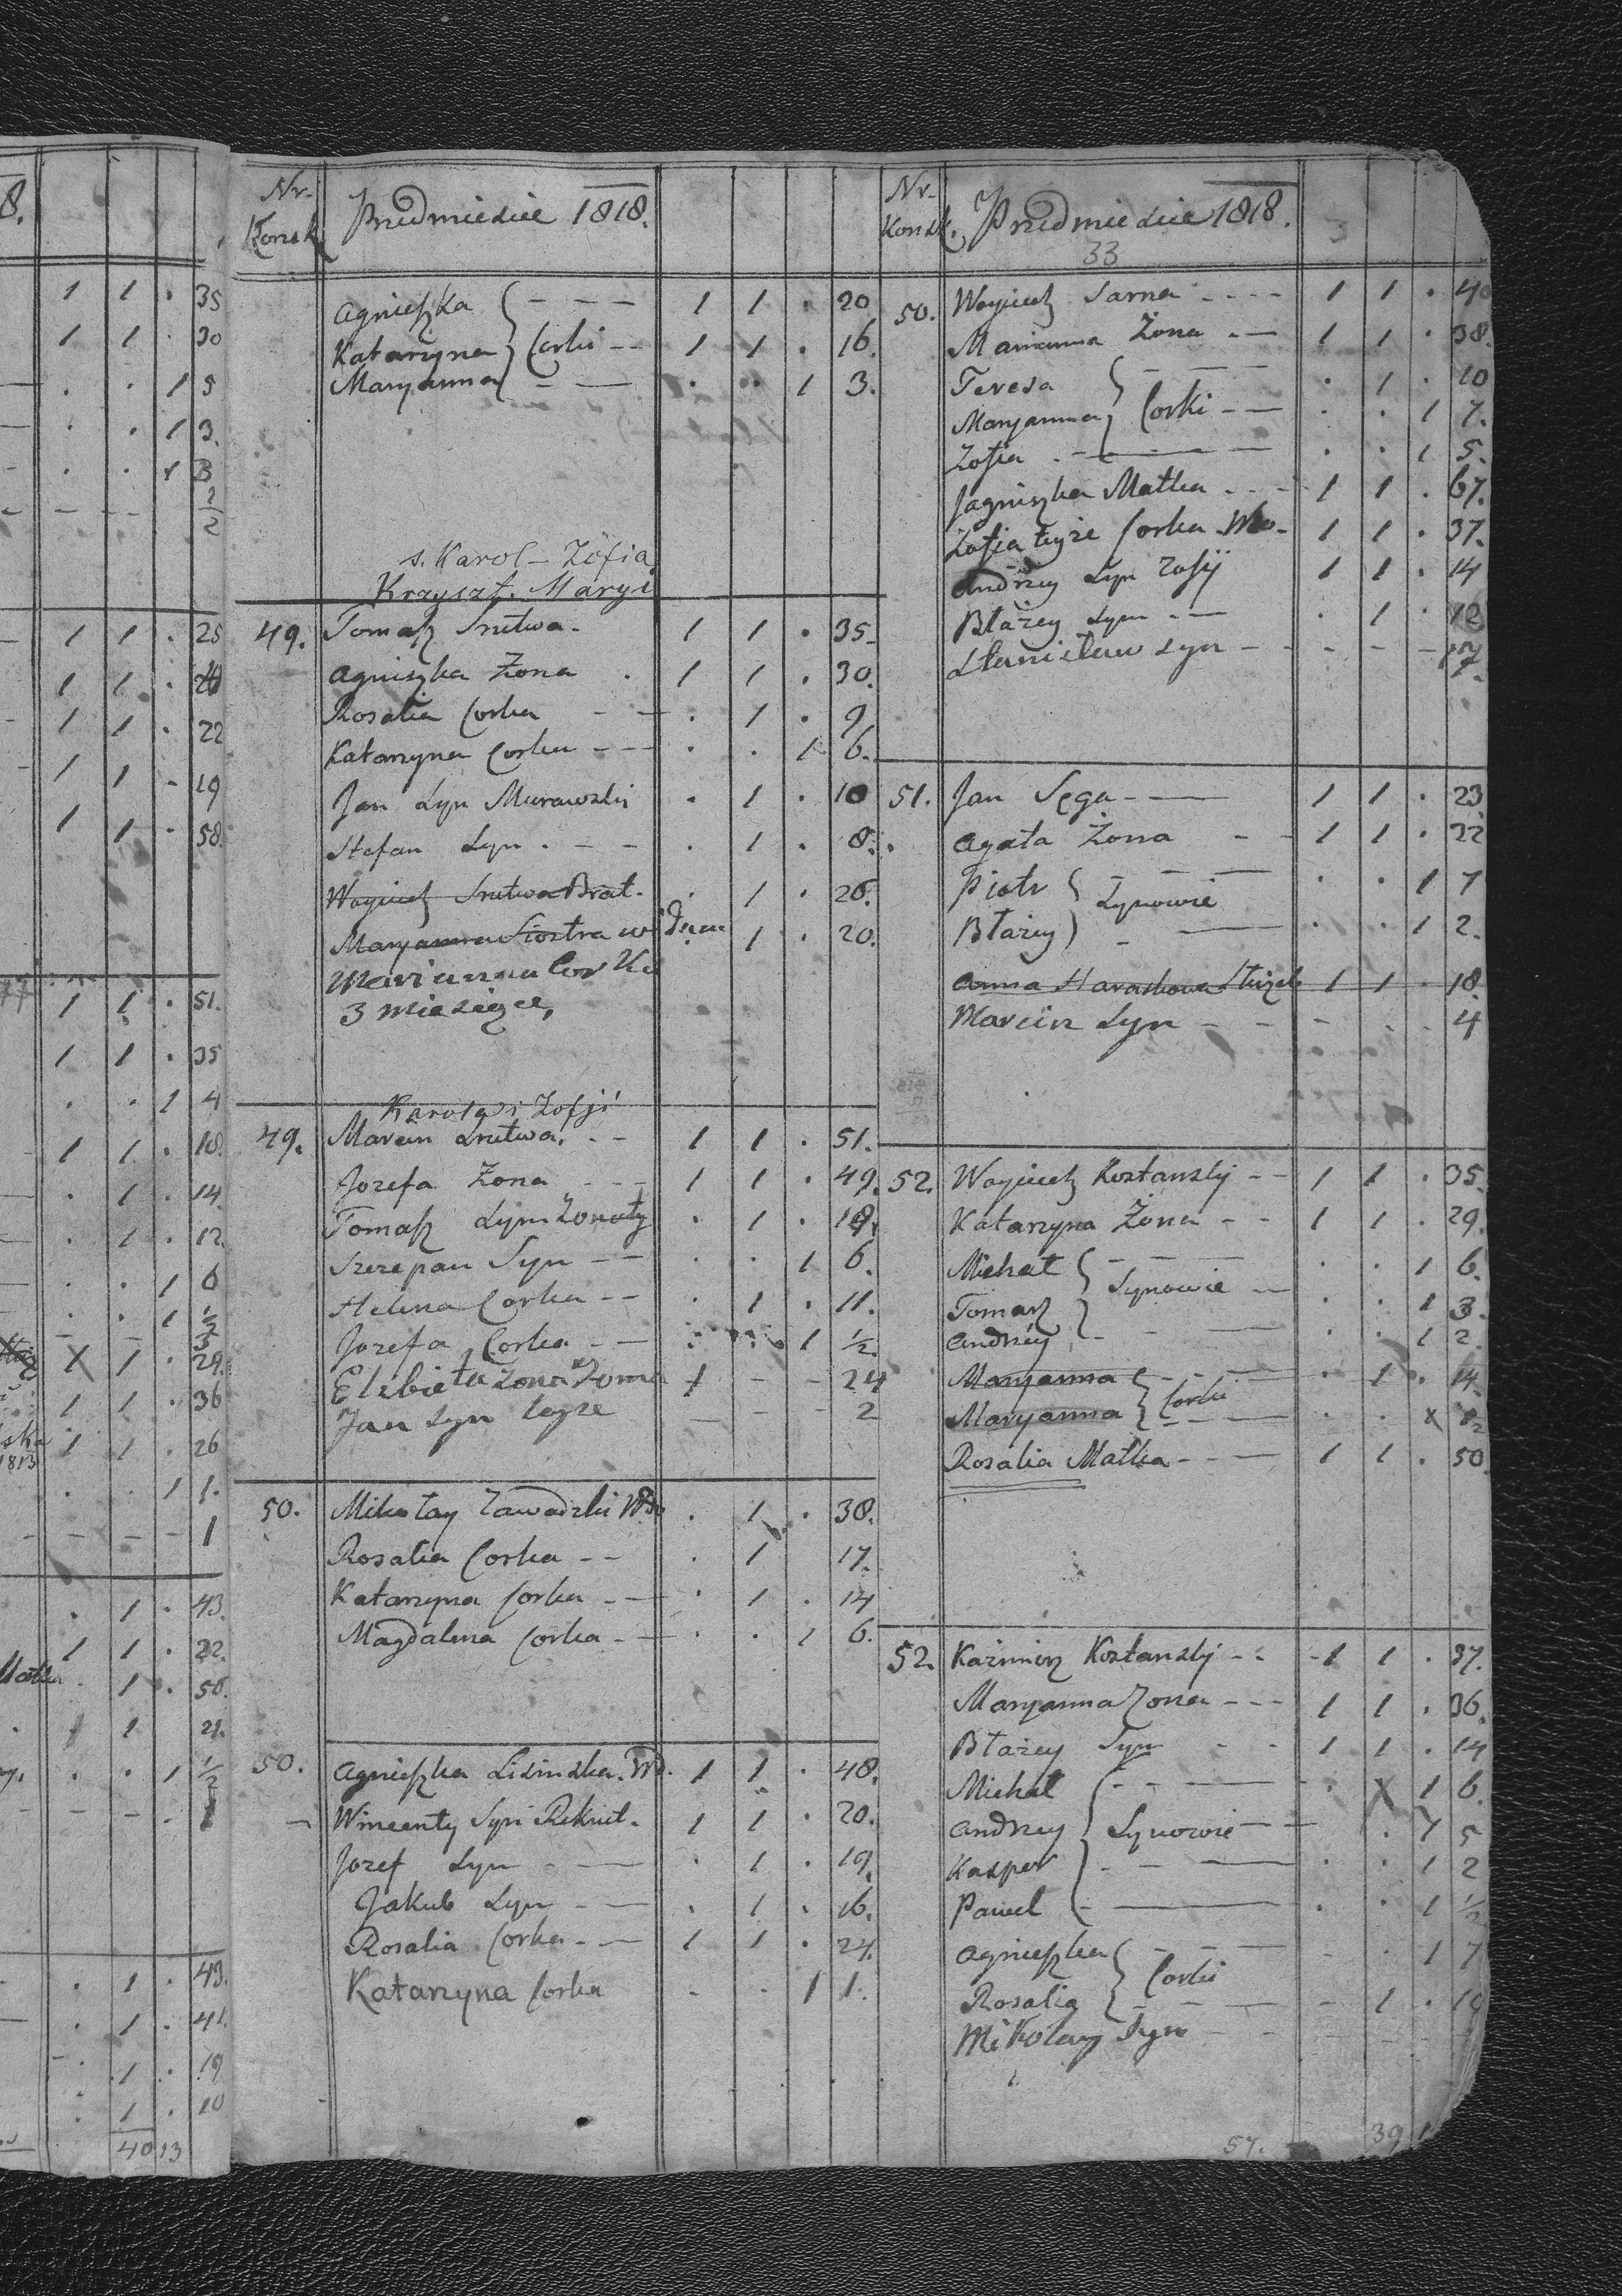 8.
1 1 . 35
1 1 . 30
. . 1 5
. . 1 3.
1 1 . 25
1 1 . 22
1 1 - 19
1 1 . 58.
1 1 . 51.
1 1 . 35
. . 1 4
1 1 . 18.
. 1 . 14
. 1 . 12.
. . 1 6
. . 1 ½
X 1 . 29.
1 1 . 36
1 1 . 26
1813
. . 1 1.
- - - 1
. 1 . 43.
1 1 . 22.
Matka . 1 . 50.
1 1 21.
. . 1 ½
. 1 . 49.
. 1 . 41.
. 1 . 19
. 1 . 10
40 13
Nr. Konsk. Przedmiescie 1818.
Agnieszka - - - 1 1 . 20
Katarzyna } Corki - - 1 1 . 16.
Maryanna - - . . 1 3.
s. Karol - Zofia
Krzyszt. Maryi
49. Tomasz Srutwa. 1 1 . 35.
Agniszka Żona . 1 1 . 30.
Rosalia Corka - - . 1 . 9.
Katarzyna Corka - - - . . 1 6.
Jan Syn Murawski . 1 . 10
Stefan Syn . - - . 1 . 8.
Woyciech Srutwa Brat. . 1 . 26.
Maryanna Siostra 1 . 20.
Marianna Cor Ka
3 miesięce,
Karola i Zofji
49. Marcin Srutwa. . - 1 1 . 51.
Jozefa Żona - - - 1 1 . 49.
Tomasz Syn Żonaty . 1 . 18.
Szczepan Syn - - . . 1 6.
Helena Corka - - . 1 . 11.
Jozefa Corka - - . . 1 ½.
Elzbieta żona Toma 1 - - 24
Jan Syn teyże - - - 2
50. Mikołay Zawadzki Wdo . 1 . 38.
Rosalia Corka - - . 1 17.
Katarzyna Corka - - . 1 . 14
Magdalena Corka - - . . 1 6.
50. Agnieszka Lisinska. Wd. 1 1 . 48.
Wincenty Syn Rekrut. 1 1 . 20.
Jozef Syn - - . 1 . 19.
Jakub Syn - - . 1 . 16.
Rosalia Corka - - 1 1 . 24.
Katarzyna Corka - . 1 1.
Nr. Konsk. Przedmiescie 1818.
33
50. Woyciech Sarna - - - - 1 1 . 40
Marianna Żona - - 1 1 . 38.
Teresa - - . 1 . 10
Maryanna } Corki - - . . 1 7.
Zofia . - - . . 1 5.
Jagniszka Matka - - - 1 1 . 67.
Zofia teyże Corka Wdo - 1 1 . 37.
Andrzey Syn Zofij 1 1 . 14
Błażey Syn - - . 1 . 12
Stanisław Syn - - - - -
51. Jan Sęga - - 1 1 . 23
Agata Żona - - 1 1 . 22
Piotr } Synowie . . 1 7
Błażey - - . . 1 2.
Anna Haraskowa 1 1 . 18.
Marcin Syn - - - . . 4
52. Woyciech Kostanski - - 1 1 . 35.
Katarzyna Żona - - 1 1 . 29.
Michał - - . . 1 6.
Tomasz } Synowie - . . 1 3.
Andrzey - - . . 1 2.
Maryanna - - . 1 . 14.
Maryanna } Corki . . x ½
Rosalia Matka - - - 1 1 . 50.
52. Kazimierz Kostanski - - 1 1 . 37.
Maryanna Zona - - - 1 1 . 36.
Błażey Syn - - 1 1 . 14
Michał - - . X 1 6.
Andrzey } Synowie - - . 1 5
Kasper - - . . 1 2
Paweł - - . . 1 ½
Agnieszka - - - . 1 7
Rosalia } Corki - 1 . 10
Mikołay Syn - - -
57. 39 1